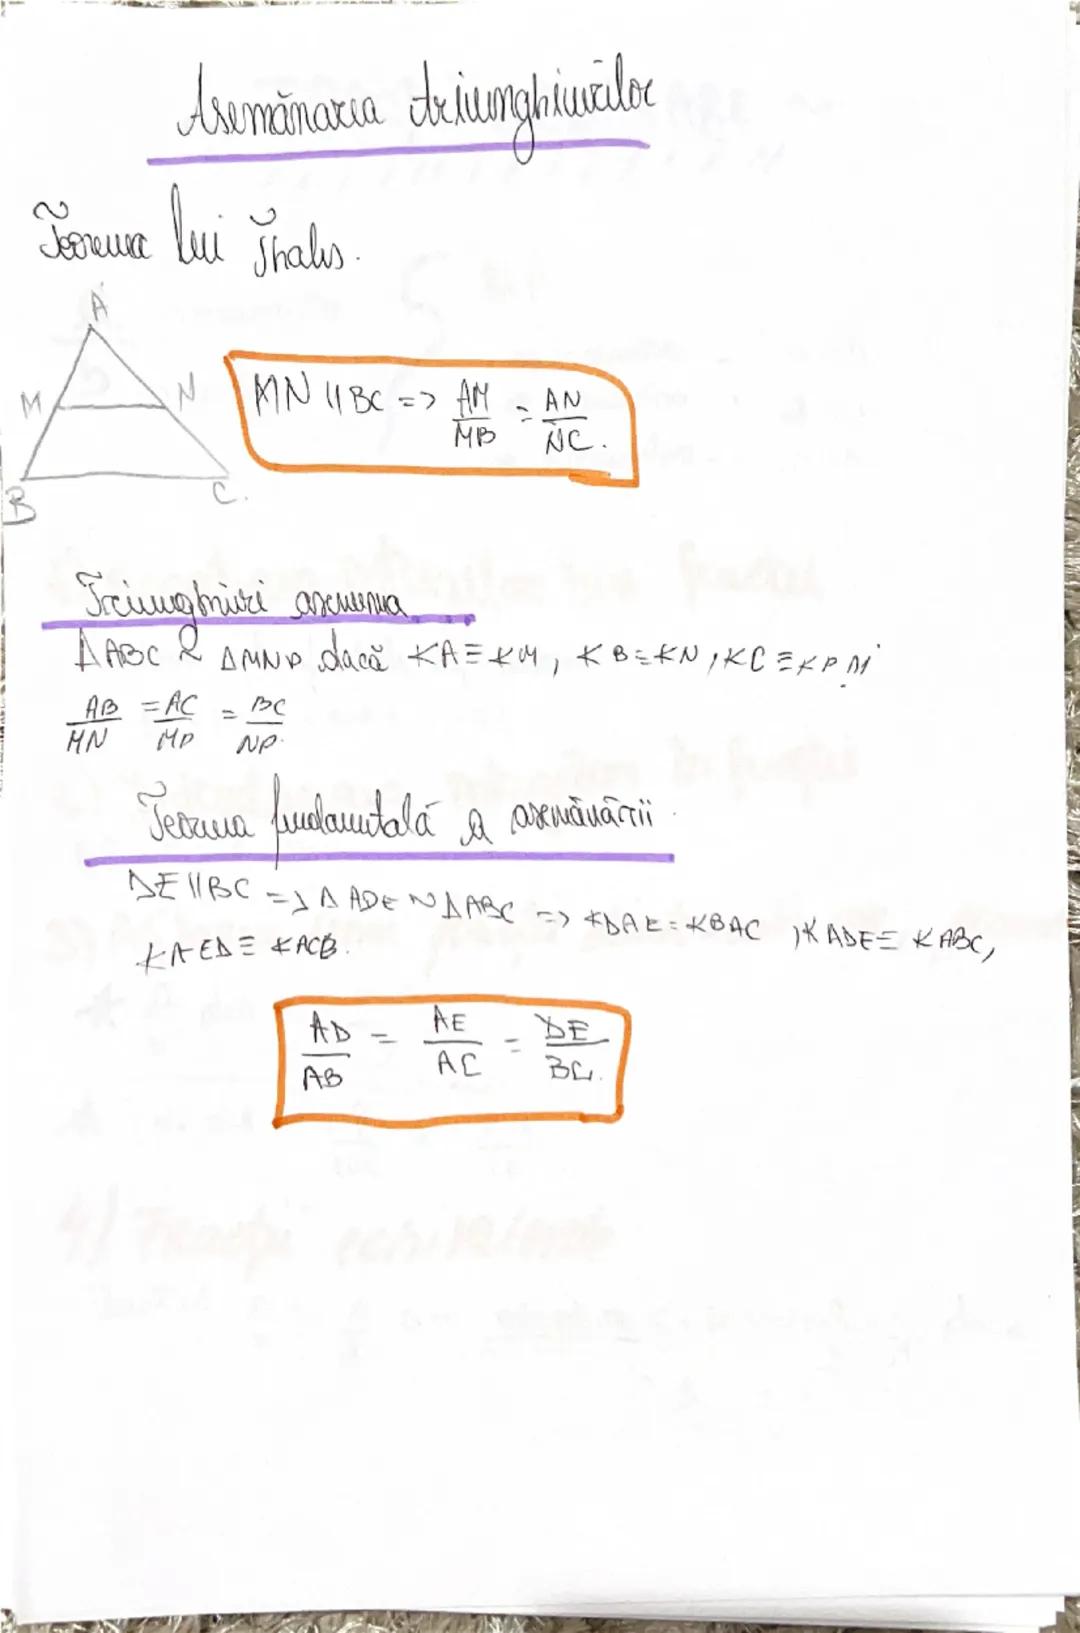 Asemănarea triunghiurilor
Teorema lui Thales.
A
M N
B C.
MN || BC => AM/MB = AN/NC.
Triunghiuri asemenea
△ABC ~ △MNP dacă ∢A ≡ ∢M, ∢B = ∢N, ∢C ≡ ∢P
AB/MN = AC/MP = BC/NP.
Teorema fundamentală a asemănării
DE || BC => △ADE ~ △ABC => ∢DAE = ∢BAC, ∢ADE ≡ ∢ABC,
∢AED ≡ ∢ACB.
AD/AB = AE/AC = DE/BC.